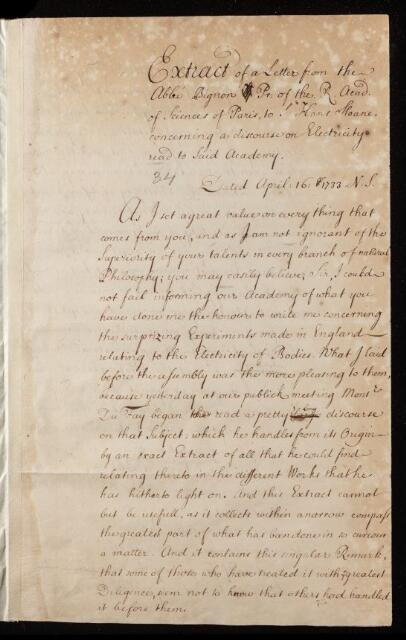 Extract of a Letter from the
Abbé Bignon Pr. of the R Acad.
of Sciences of Paris, to Sr Hans Sloane
concerning a discourse on Electricity
read to said Academy.
34
Dated April 16. 1733 N.S.
As I set a great value on every thing that
comes from you, and as I am not ignorant of the
Superiority of your talents in every branch of natural
Philosophy; you may easily believe, Sir, I could
not fail informing our Academy of what you
have done me the honour to write me concerning
the surprizing Experiments made in England
relating to the Electricity of Bodies. What I laid
before the assembly was the more pleasing to them,
because yesterday at our publick meeting Monsr
Du Fay began read a pretty discourse
on that Subject; which he handles from its Origin
by an exact Extract of all that he could find
relating thereto in the different Works that he
has hitherto light on. And this Extract cannot
but be usefull, as it collects within a narrow compass
the greatest part of what has been done in so curious
a matter. And it contains this singular Remark,
that some of those who have treated it with greatest
Diligence, seem not to know that others had handled
it before them.